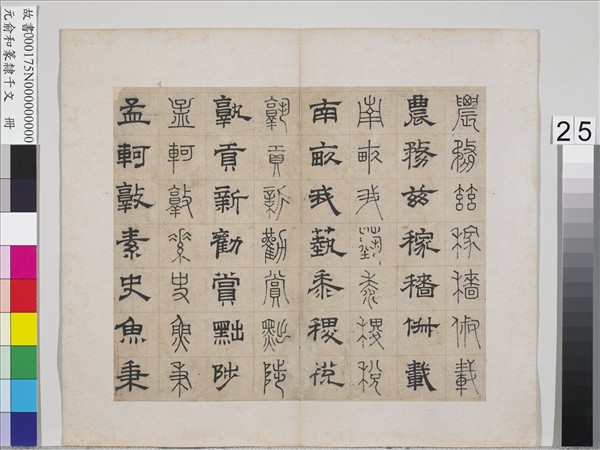 農務茲稼穡俶載
農務茲稼穡俶載
南畝我藝黍稷稅
南畝我藝黍稷稅
孰貢新勸賞黜陟
孰貢新勸賞黜陟
孟軻敦素史魚秉
孟軻敦素史魚秉
故書000175N000000000
元俞和篆隸千文 冊
25